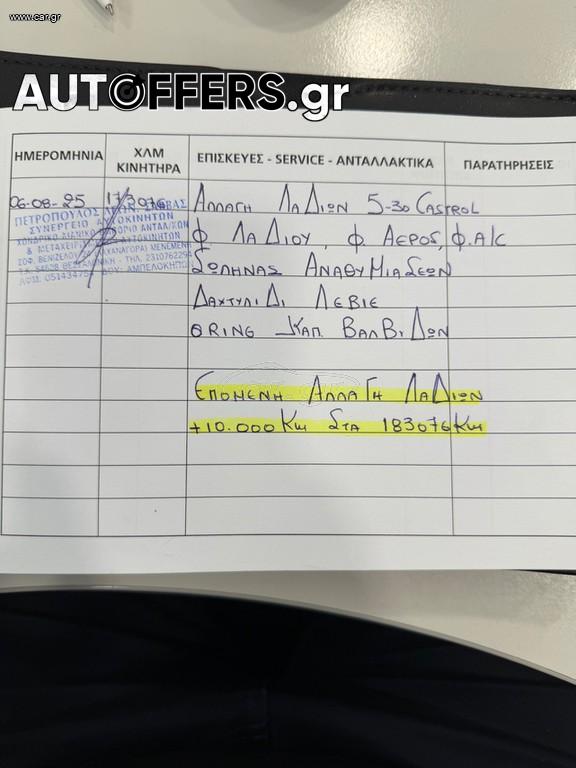 www.car.gr
AUTOFFERS.gr
ΗΜΕΡΟΜΗΝΙΑ
ΧΛΜ ΚΙΝΗΤΗΡΑ
ΕΠΙΣΚΕΥΕΣ - SERVICE - ΑΝΤΑΛΛΑΚΤΙΚΑ
ΠΑΡΑΤΗΡΗΣΕΙΣ
06-08-25 173076 ΑΛΛΑΓΗ ΛΑΔΙΩΝ 5-30 CASTROL
Φ ΛΑΔΙΟΥ, Φ ΑΕΡΟΣ, Φ.A/C
ΣΩΛΗΝΑΣ ΑΝΑΘΥΜΙΑΣΕΩΝ
ΔΑΧΤΥΛΙΔΙ ΛΕΒΙΕ
ORING ΚΑΠ. ΒΑΛΒΙΔΩΝ
ΕΠΟΜΕΝΗ ΑΛΛΑΓΗ ΛΑΔΙΩΝ
+10.000 Km ΣΤΑ 183076 Km
ΠΕΤΡΟΠΟΥΛΟΣ
ΣΥΝΕΡΓΕΙΟ ΑΥΤΟΚΙΝΗΤΩΝ
& ΜΕΤΑΧΕΙΡ ΑΥΤΟΚΙΝΗΤΩΝ
ΣΟΦ. ΒΕΝΙΖΕΛΟΥ ΜΕΝΕΜΕΝΗ
ΘΕΣΣΑΛΟΝΙΚΗ - ΤΗΛ. 2310762294
ΑΦΜ: ΔΟΥ: ΑΜΠΕΛΟΚΗΠΩΝ